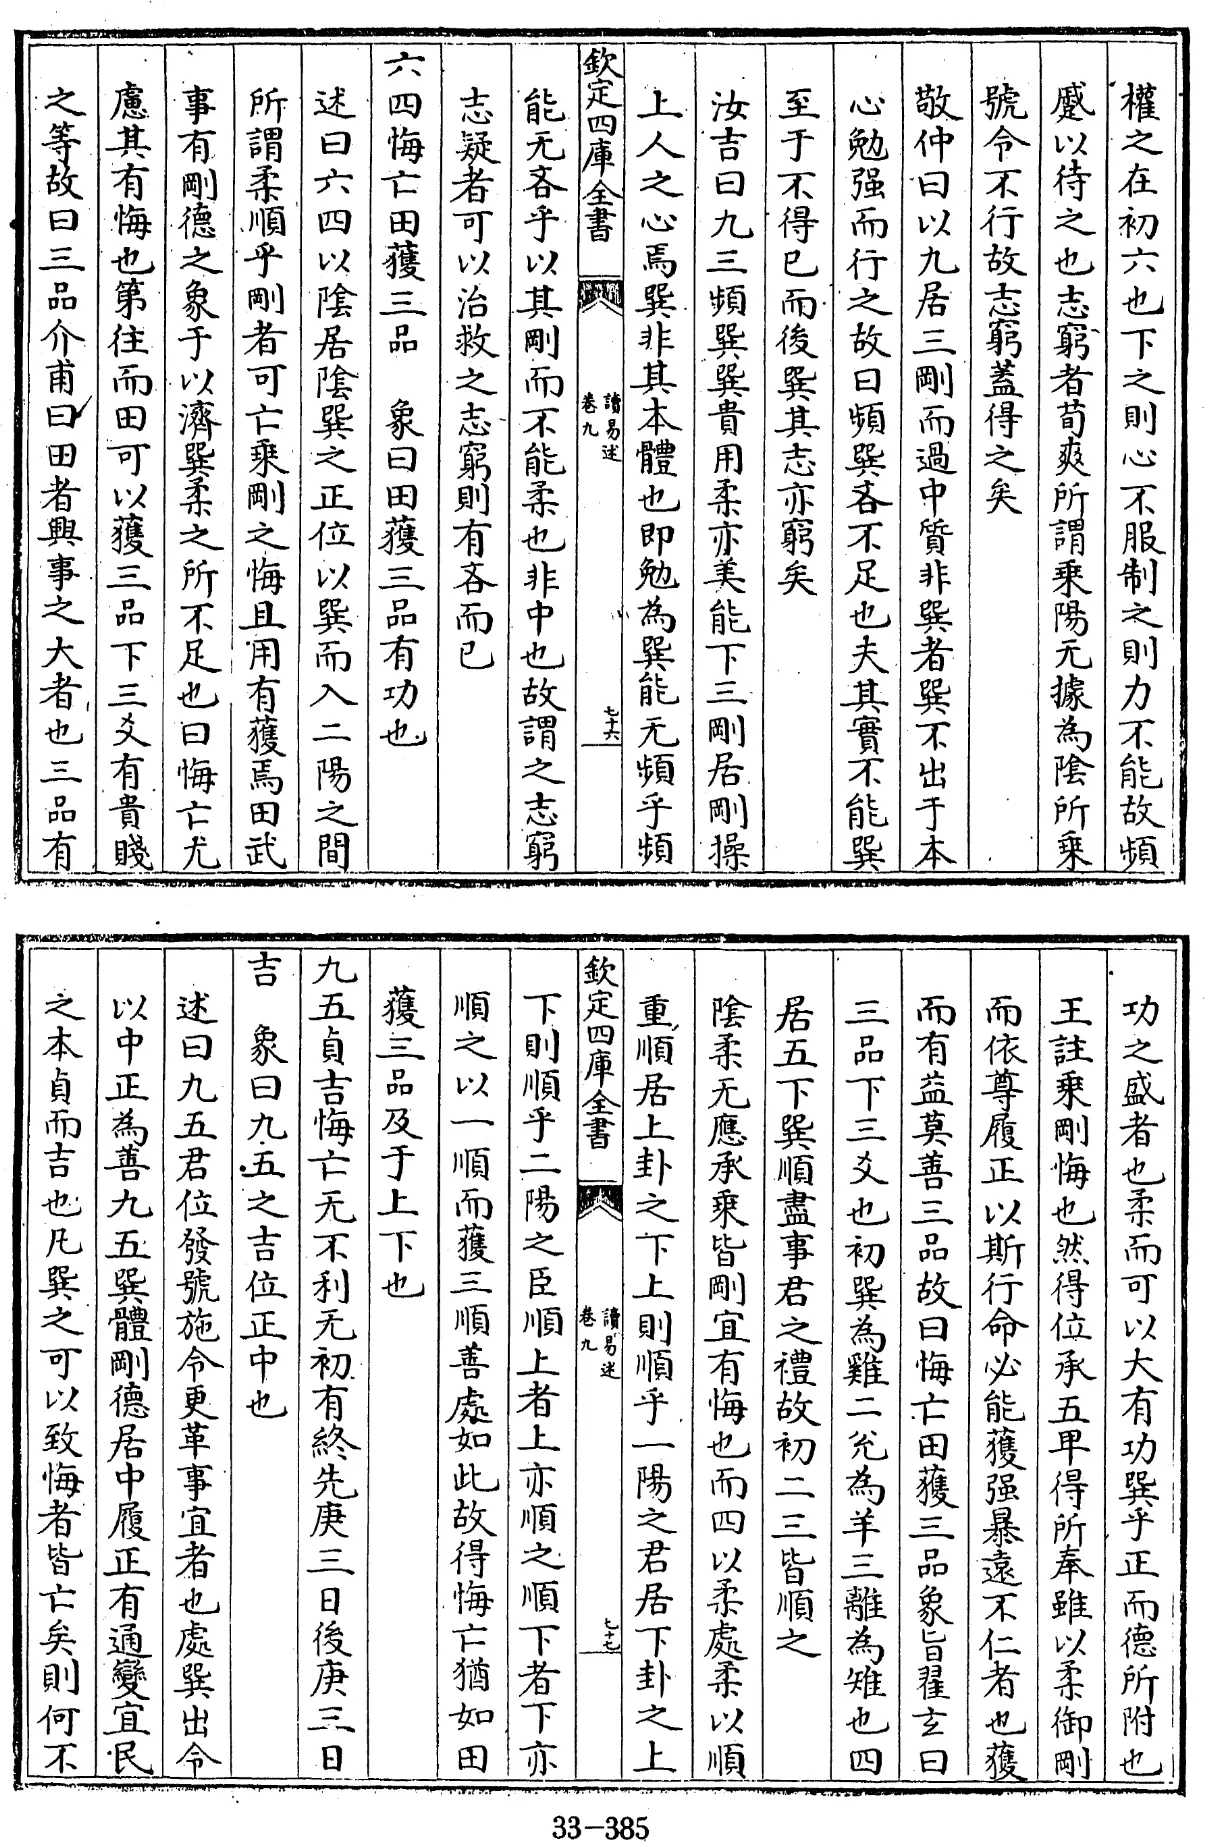 權之在初六也下之則心不服制之則力不能故頻
蹙以待之也志窮者荀爽所謂乘陽无據為陰所乘
號令不行故志窮蓋得之矣
敬仲曰以九居三剛而過中質非巽者巽不出于本
心勉强而行之故曰頻巽吝不足也夫其實不能巽
至于不得已而後巽其志亦窮矣
汝吉曰九三頻巽巽貴用柔亦美能下三剛居剛操
上人之心焉巽非其本體也即勉為巽能无頻乎頻
欽定四庫全書
讀易述
卷九
七十六
能无吝乎以其剛而不能柔也非中也故謂之志窮
志疑者可以治救之志窮則有吝而已
六四悔亡田獲三品 象曰田獲三品有功也
述曰六四以陰居陰巽之正位以巽而入二陽之間
所謂柔順乎剛者可亡乘剛之悔且用有獲焉田武
事有剛德之象于以濟巽柔之所不足也曰悔亡尤
慮其有悔也第往而田可以獲三品下三爻有貴賤
之等故曰三品介甫曰田者興事之大者也三品有
功之盛者也柔而可以大有功巽乎正而德所附也
王註乘剛悔也然得位承五甲得所奉雖以柔御剛
而依尊履正以斯行命必能獲强暴遠不仁者也獲
而有益莫善三品故曰悔亡田獲三品象旨翟玄曰
三品下三爻也初巽為雞二兊為羊三離為雉也四
居五下巽順盡事君之禮故初二三皆順之
陰柔无應承乘皆剛宜有悔也而四以柔處柔以順
重順居上卦之下上則順乎一陽之君居下卦之上
欽定四庫全書
讀易述
卷九
七十七
下則順乎二陽之臣順上者上亦順之順下者下亦
順之以一順而獲三順善處如此故得悔亡猶如田
獲三品及于上下也
九五貞吉悔亡无不利无初有終先庚三日後庚三日
吉 象曰九五之吉位正中也
述曰九五君位發號施令更革事宜者也處巽出令
以中正為善九五巽體剛德居中履正有通變宜民
之本貞而吉也凡巽之可以致悔者皆亡矣則何不
33-385